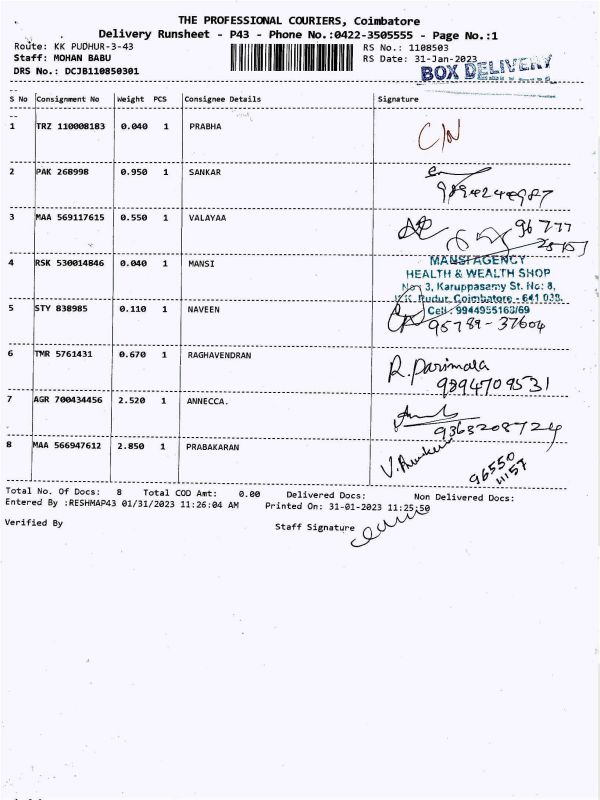 THE PROFESSIONAL COURIERS, Coimbatore
Delivery Runsheet - P43 - Phone No.:0422-3505555 - Page No.:1
Route: KK PUDHUR-3-43 RS No.: 1108503
Staff: MOHAN BABU RS Date: 31-Jan-2023
DRS No.: DCJB110850301
BOX DELIVERY
S No Consignment No Weight PCS Consignee Details Signature
1 TRZ 110008183 0.040 1 PRABHA C/N
2 PAK 268998 0.950 1 SANKAR
3 MAA 569117615 0.550 1 VALAYAA 96777
4 RSK 530014846 0.040 1 MANSI
MANSI AGENCY
HEALTH & WEALTH SHOP
No 3, Karuppasamy St. No: 8,
K.K. Pudur, Coimbatore - 641 038.
Cell: 9944955163/69
5 STY 838985 0.110 1 NAVEEN 95789-37604
6 TMR 5761431 0.670 1 RAGHAVENDRAN R. Parimala
9894709531
7 AGR 700434456 2.520 1 ANNECCA.
9363208724
8 MAA 566947612 2.850 1 PRABAKARAN 96550
41157
Total No. Of Docs: 8 Total COD Amt: 0.00 Delivered Docs: Non Delivered Docs:
Entered By :RESHMAP43 01/31/2023 11:26:04 AM Printed On: 31-01-2023 11:25:50
Verified By Staff Signature